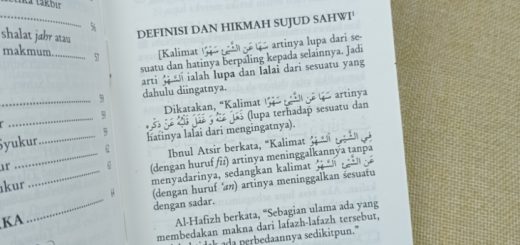 takbir
shalat jahr atau
makmum
56
57
59
59
60
61
64
DEFINISI DAN HIKMAH SUJUD SAHWI¹
[Kalimat سَهَا عَنِ الشَّيْئِ سَهْوًا artinya lupa dari se-
suatu dan hatinya berpaling kepada selainnya. Jadi
arti اَلسَّهْوُ ialah lupa dan lalai dari sesuatu yang
dahulu diingatnya.
Dikatakan, “Kalimat سَهَا عَنِ الشَّيْئِ سَهْوًا artinya
ذَهَلَ عَنْهُ وَ غَفَلَ قَلْبُهُ عَنْ ذِكْرِهِ (lupa terhadap sesuatu dan
hatinya lalai dari mengingatnya).
Ibnul Atsir berkata, “Kalimat اَلسَّهْوُ فِي الشَّيْئِ
(dengan huruf fii) artinya meninggalkannya tanpa
menyadarinya, sedangkan kalimat اَلسَّهْوُ عَنِ الشَّيْئِ
(dengan huruf ‘an) artinya meninggalkan sesuatu
dengan sadar.
Al-Hafizh berkata, “Sebagian ulama ada yang
membedakan makna dari lafazh-lafazh tersebut,
ada perbedaannya sedikitpun.”